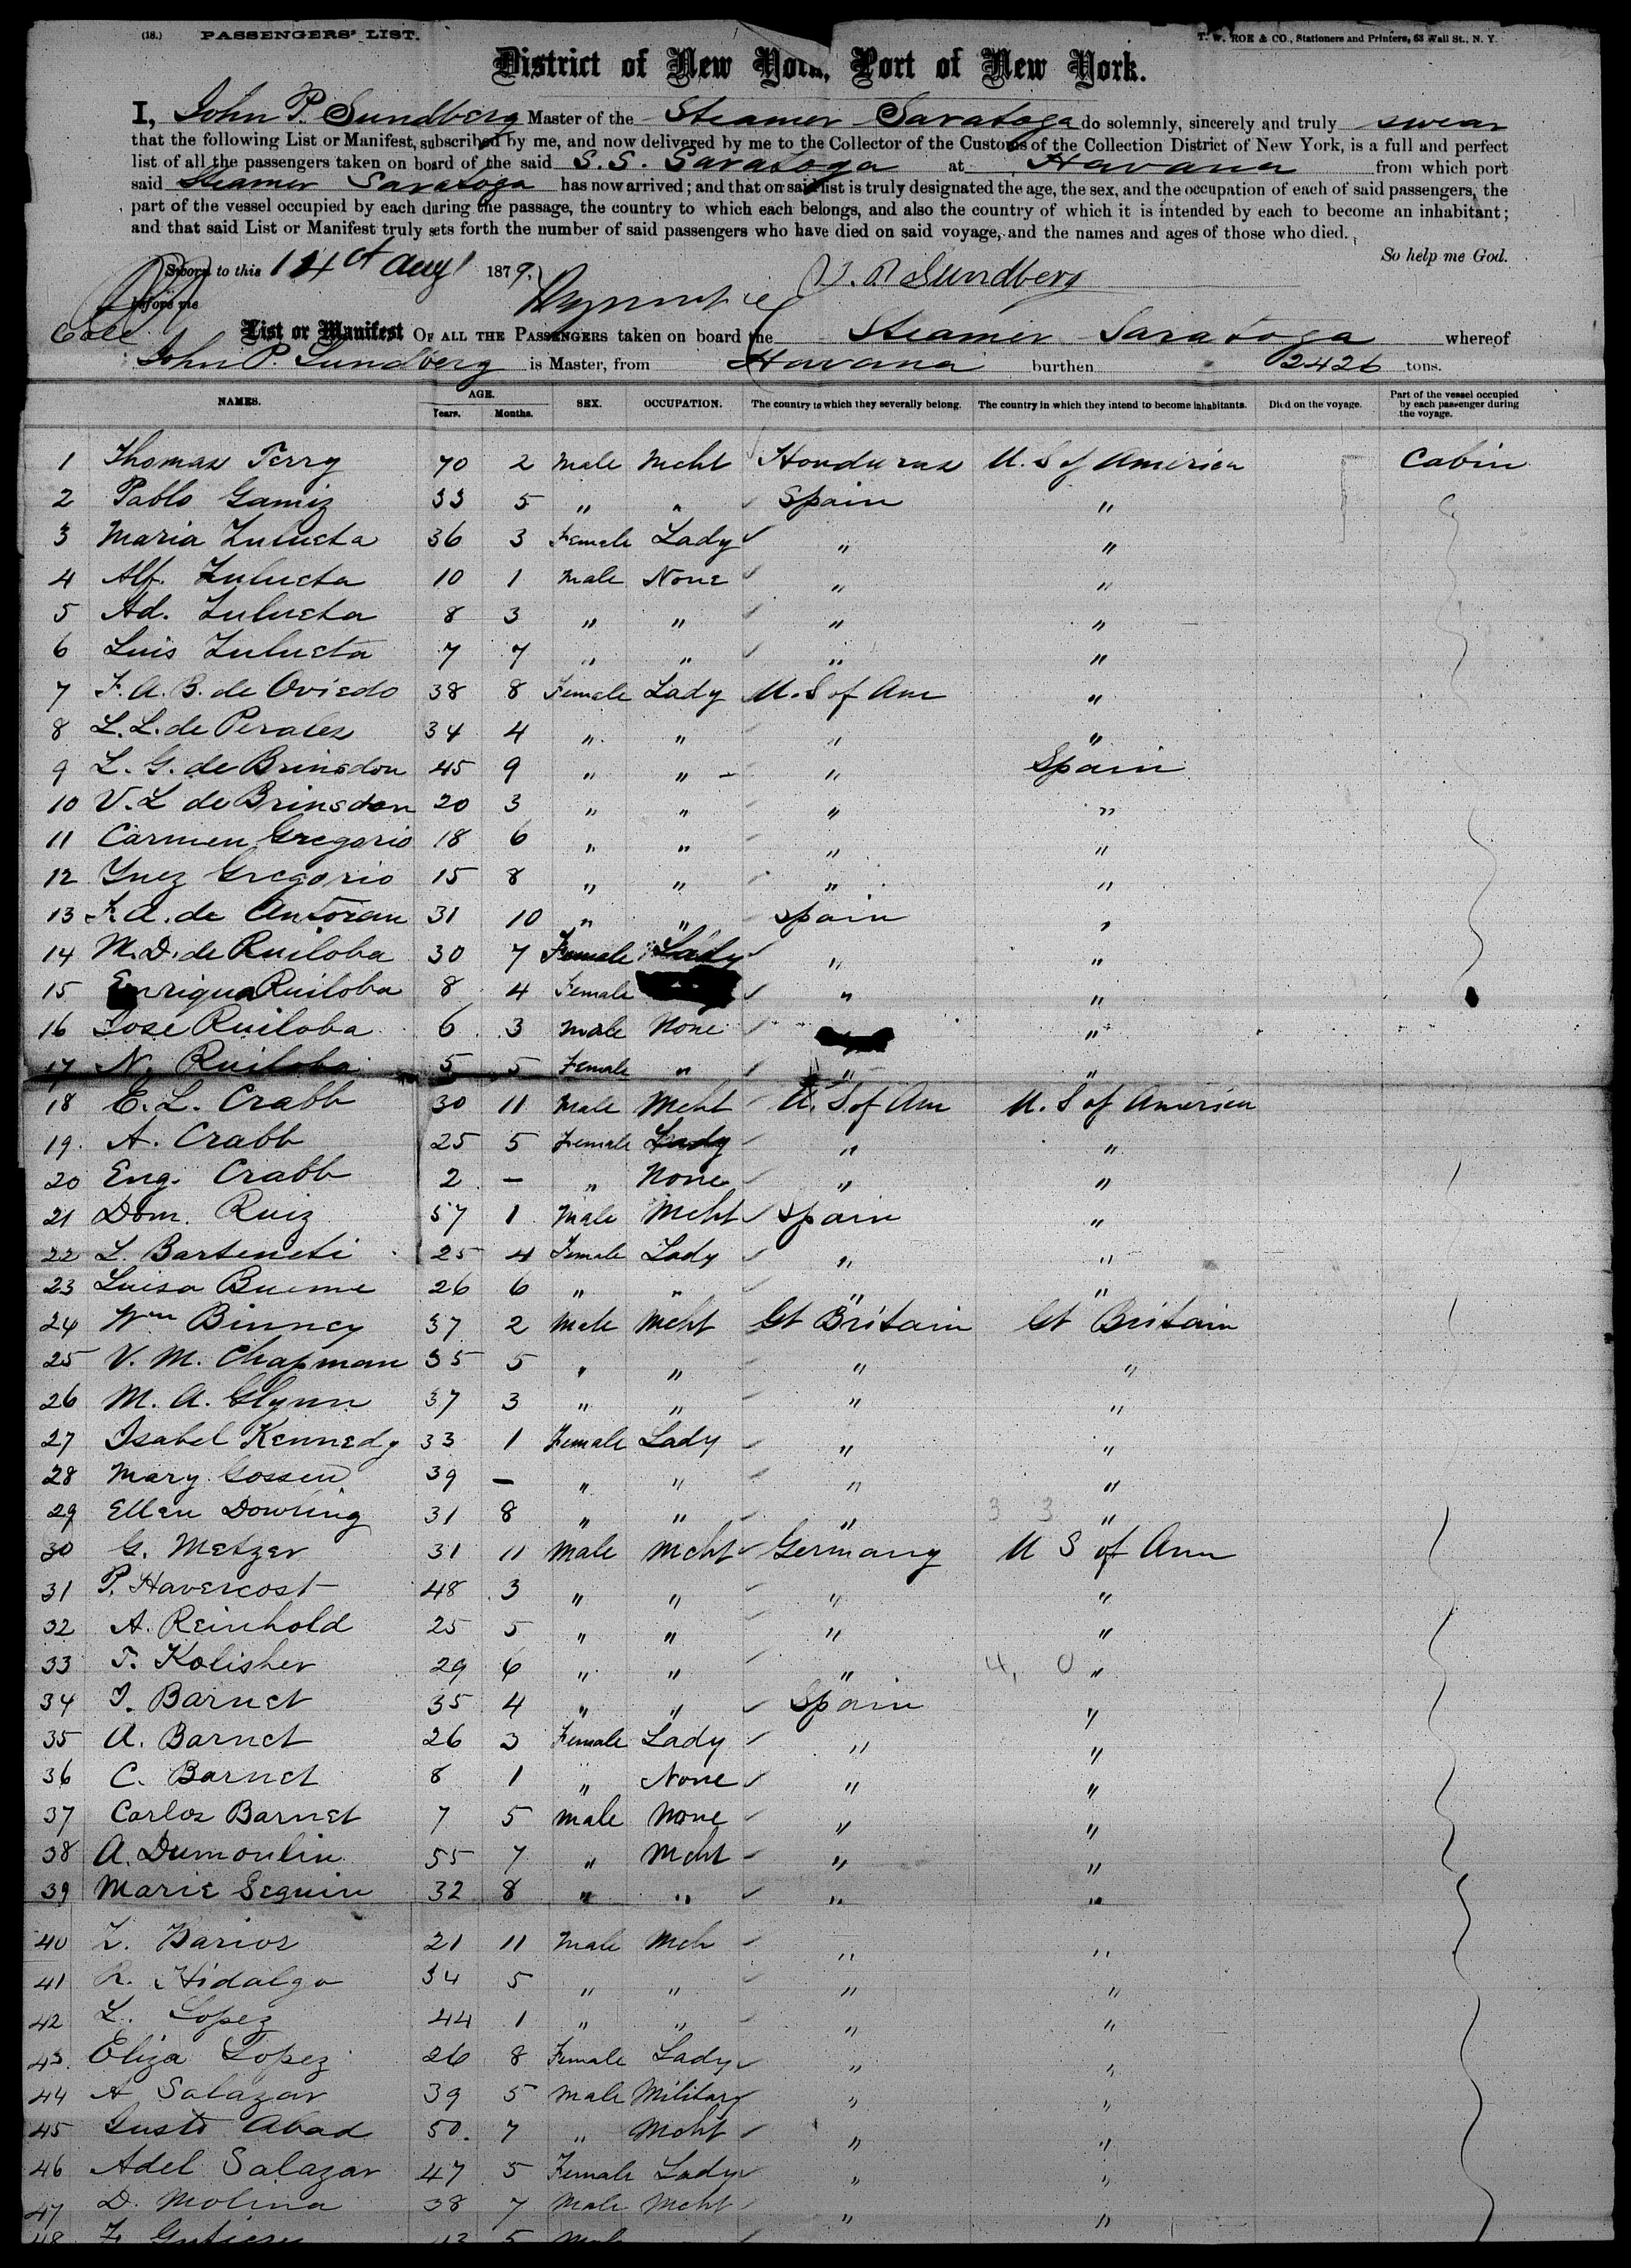 (18.) PASSENGERS' LIST.
T. W. ROE & CO., Stationers and Printers, 63 Wall St., N. Y.
District of New York, Port of New York.
I, John P. Sundberg Master of the Steamer Saratoga do solemnly, sincerely and truly swear
that the following List or Manifest, subscribed by me, and now delivered by me to the Collector of the Customs of the Collection District of New York, is a full and perfect
list of all the passengers taken on board of the said S.S. Saratoga at Havana from which port
said Steamer Saratoga has now arrived; and that on said list is truly designated the age, the sex, and the occupation of each of said passengers, the
part of the vessel occupied by each during the passage, the country to which each belongs, and also the country of which it is intended by each to become an inhabitant;
and that said List or Manifest truly sets forth the number of said passengers who have died on said voyage, and the names and ages of those who died.
So help me God.
Sworn to this 14th Augt 1879. J. P. Sundberg
before me
List or Manifest OF ALL THE PASSENGERS taken on board the Steamer Saratoga whereof
John P. Sundberg is Master, from Havana burthen 2426 tons.
NAMES. AGE. Years. Months. SEX. OCCUPATION. The country to which they severally belong. The country in which they intend to become inhabitants. Died on the voyage. Part of the vessel occupied by each passenger during the voyage.
1 Thomas Terry 70 2 Male Mcht Honduras U. S of America Cabin
2 Pablo Gamiz 33 5 " " Spain "
3 Maria Zulueta 36 3 Female Lady " "
4 Alf. Zulueta 10 1 Male None " "
5 Ad. Zulueta 8 3 " " " "
6 Luis Zulueta 7 7 " " " "
7 F. A. B. de Oviedo 38 8 Female Lady U. S of Am "
8 L. L. de Perales 34 4 " " " "
9 L. G. de Brinsdon 45 9 " " " Spain
10 V. L de Brinsdon 20 3 " " " "
11 Carmen Gregorio 18 6 " " " "
12 Ynez Gregorio 15 8 " " " "
13 F. A. de Antoran 31 10 " " Spain "
14 M. D. de Ruiloba 30 7 Female Lady " "
15 Enriqua Ruiloba 8 4 Female " "
16 Jose Ruiloba 6 3 Male None "
17 N. Ruiloba 5 5 Female " " "
18 E. L. Crabb 30 11 Male Mcht U. S of Am U. S of America
19. A. Crabb 25 5 Female Lady " "
20 Eng. Crabb 2 - " None " "
21 Dom. Ruiz 57 1 Male Mcht Spain "
22 L. Barteneti 25 4 Female Lady " "
23 Luisa Bueme 26 6 " " " "
24 Wm Binney 37 2 Male Mcht Gt Britain Gt Britain
25 V. M. Chapman 35 5 " " " "
26 M. A. Glynn 37 3 " " " "
27 Isabel Kennedy 33 1 Female Lady " "
28 Mary Gossen 39 - " " " "
29 Ellen Dowling 31 8 " " " 3 3 "
30 G. Metzer 31 11 Male Mcht Germany U S of Am
31 P. Havercost 48 3 " " " "
32 A. Reinhold 25 5 " " " "
33 T. Kolisher 29 6 " " " 4, 0 "
34 J. Barnet 35 4 " " Spain "
35 A. Barnet 26 3 Female Lady " "
36 C. Barnet 8 1 " None " "
37 Carlos Barnet 7 5 Male None " "
38 A. Dumoulin 55 7 " Mcht " "
39 Marie Seguin 32 8 " " " "
40 L. Barios 21 11 Male Mch " "
41 R. Hidalgo 34 5 " " " "
42 L. Lopez 44 1 " " " "
43. Eliza Lopez 26 8 Female Lady " "
44 A Salazar 39 5 Male Military " "
45 Justo Abad 50. 7 " Mcht " "
46 Adel Salazar 47 5 Female Lady " "
47 D. Molina 38 7 Male Mcht " "
48 5 Male